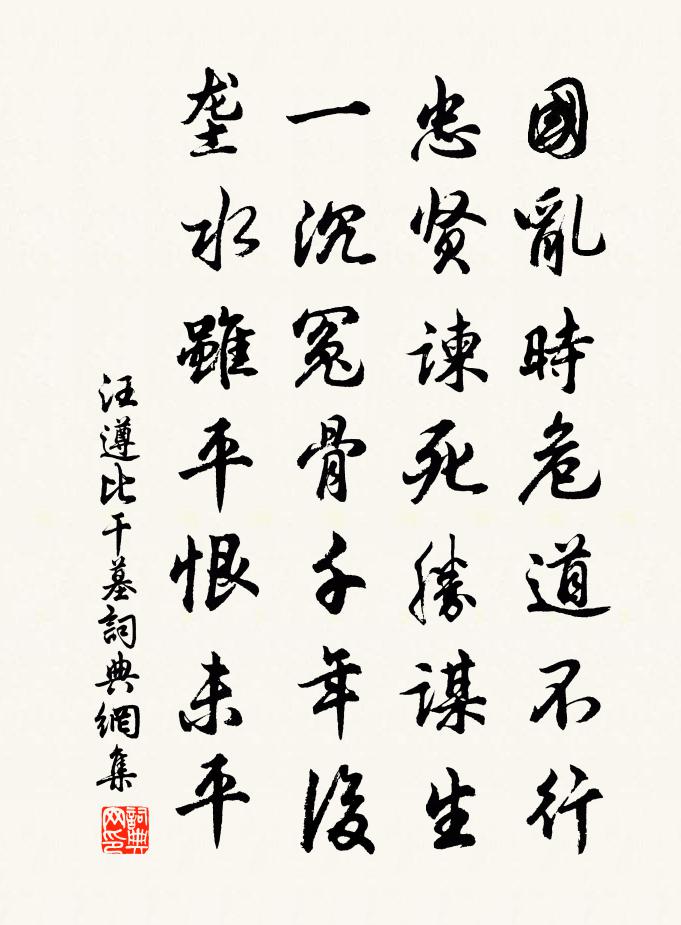 國亂時危道不行
忠贤諫死勝謀生
一沉冤骨千年後
垄水雖平恨未平
汪遵比干墓詞典網集
詞典网印